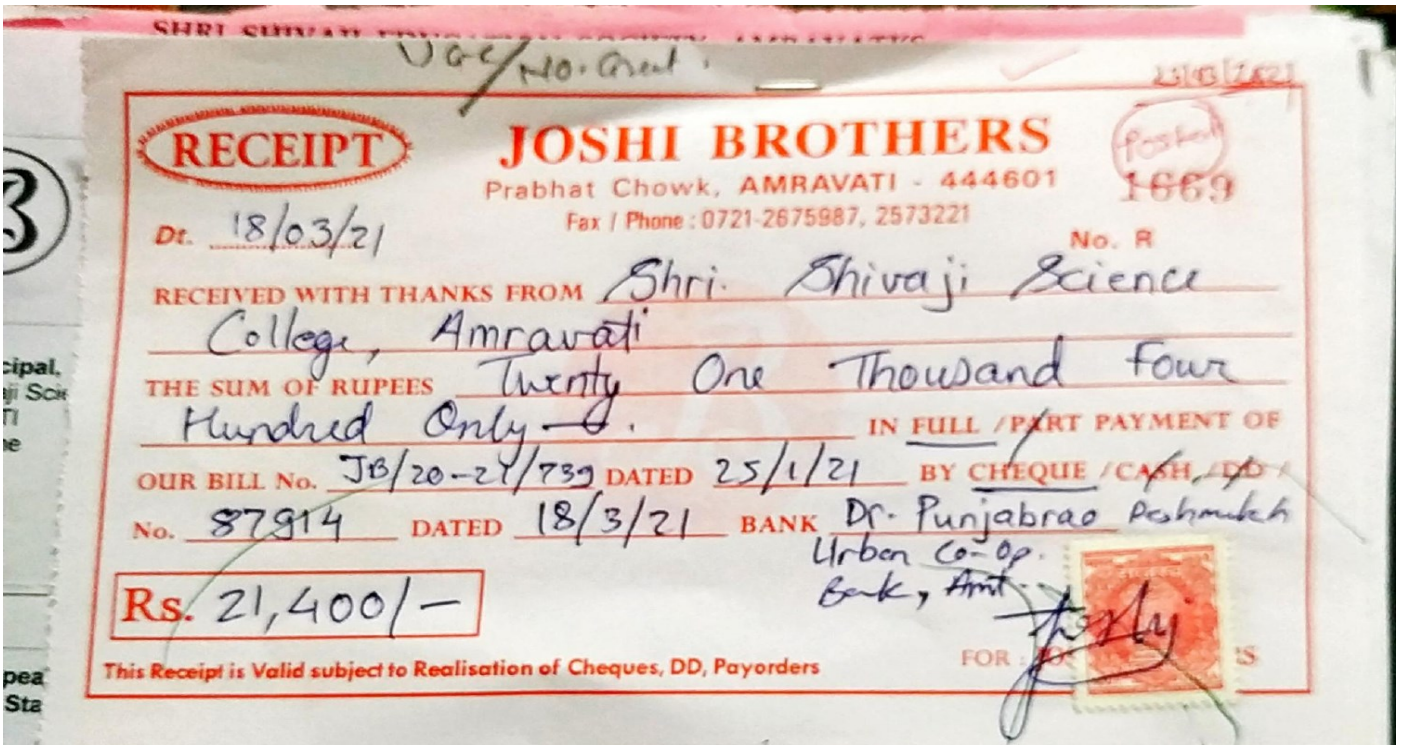 SHRI SHIVAJI EDUCATION SOCIETY, AMRAVATI'S
UGC/No. Grant.
23/03/2021
RECEIPT
JOSHI BROTHERS
Posted
Prabhat Chowk, AMRAVATI - 444601
1669
Fax / Phone : 0721-2675987, 2573221
Dt. 18/03/21
No. R
RECEIVED WITH THANKS FROM Shri. Shivaji Science
College, Amravati
THE SUM OF RUPEES Twenty One Thousand Four
Hundred Only
IN FULL / PART PAYMENT OF
OUR BILL No. JB/20-21/739 DATED 25/1/21 BY CHEQUE / CASH, / DD /
No. 87914 DATED 18/3/21 BANK Dr. Punjabrao Deshmukh
Urban Co-Op.
Bank, Amt.
Rs. 21,400/-
FOR :
This Receipt is Valid subject to Realisation of Cheques, DD, Payorders
cipal,
ji Sci
TI
pea
Sta